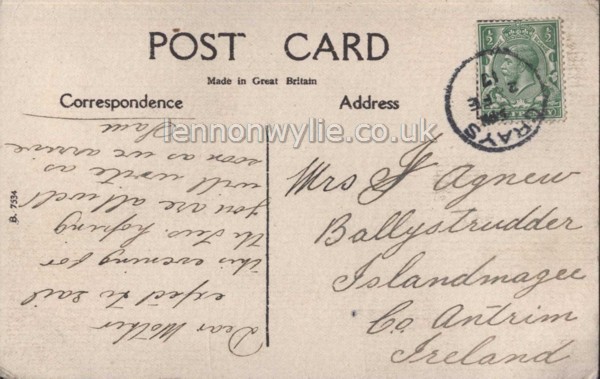 POST CARD
Made in Great Britain
Correspondence
Address
lennonwylie.co.uk
B. 7534
½ ½
GRAYS
FE
2
17
Dear Mother
expect to sail
this evening for
the Tees. hoping
you are all well
will write as
soon as we arrive
Mrs Agnew
Ballystrudder
Islandmagee
Co. Antrim
Ireland